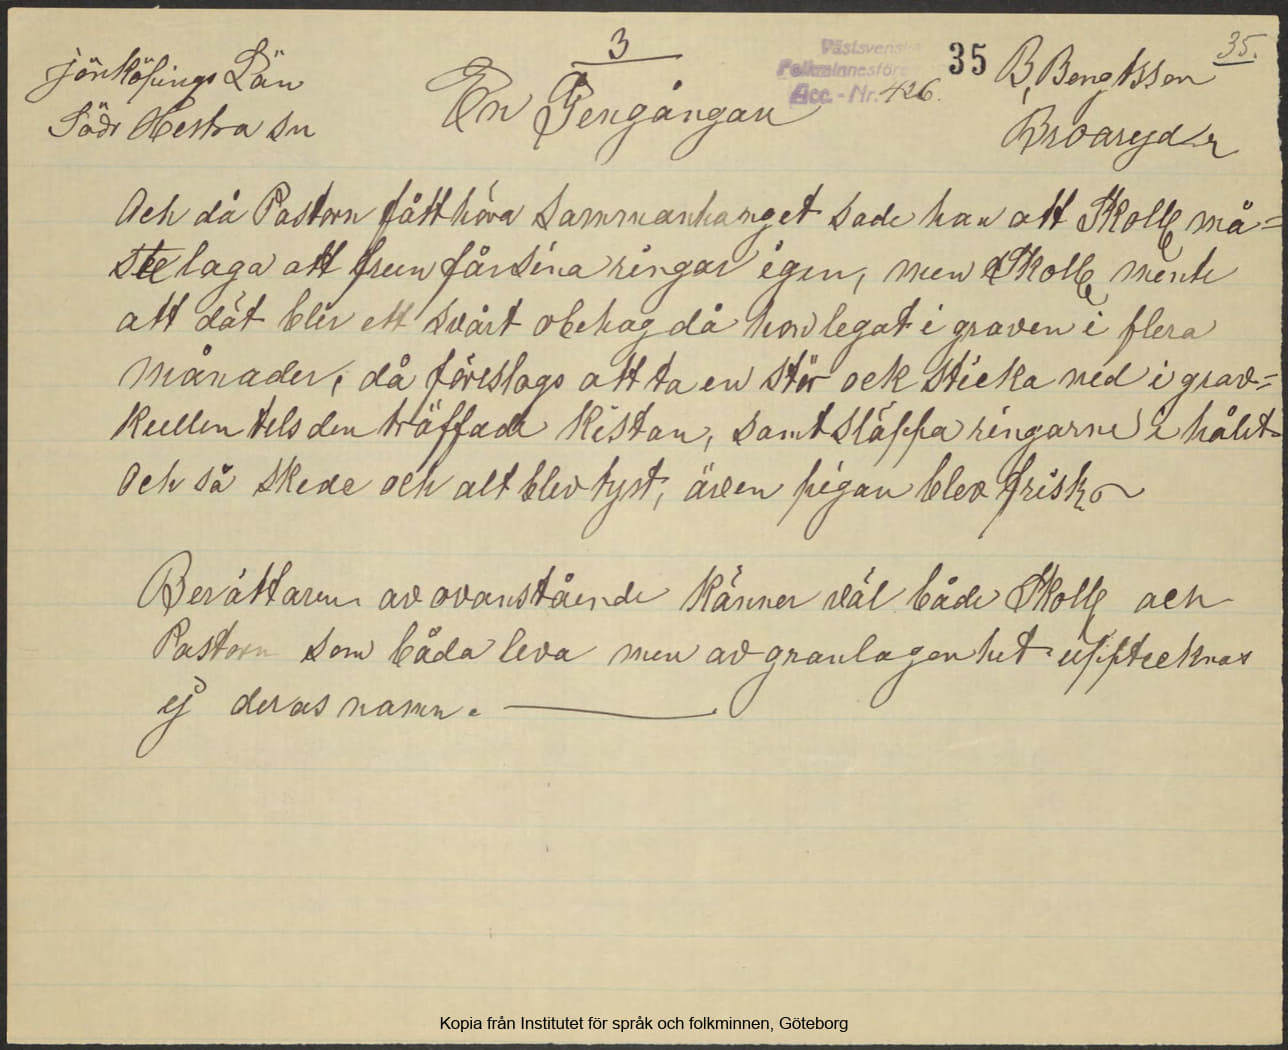 3
35.
Jönköpings Län
Södr Hestra sn
En Gengångan
Västsvenska
Folkminnesföre
Acc. - Nr. 426.
35
B, Bengtsson
Broaryd
Och då Pastorn fått höra sammanhanget sade han att Skolle må=
ste laga att frun får sina ringar igen, men Skolle mente
att dät blir ett svårt obehag då hon legat i graven i flera
månader, då föreslogs att ta en stör ock sticka ned i grav=
kullen tils den träffade kistan, samt släppa ringarne i hålet
Och så skede och alt blev tyst, även pigan blev frisk
Berättaren av ovanstående känner väl både Skolle och
Pastorn som båda leva men av granlagenhet upptecknas
ej deras namn.
Kopia från Institutet för språk och folkminnen, Göteborg